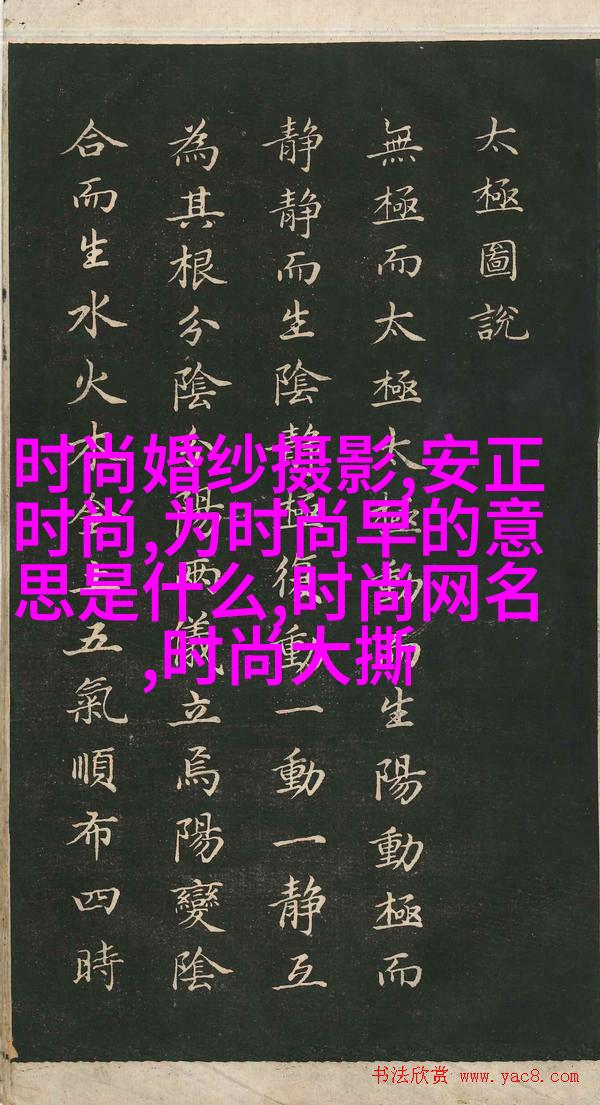 太極圖說
無極而太極太極動而生陽動極而
静静而生陰静極復動一動一静互
為其根分陰分陽兩儀立焉陽變陰
合而生水火木金土五氣順布四時
时尚婚纱摄影,安正
时尚,为时尚早的意
思是什么,时尚网名
,时尚大撕
书法欣赏 www.yac8.com